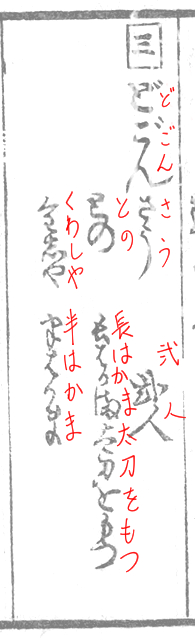 どごんさう 弐人
三 どごんさう 弐人
との 長はかま太刀をもつ
との 長はかま太刀をもつ
くわしや 半はかま
くわしや 半はかま